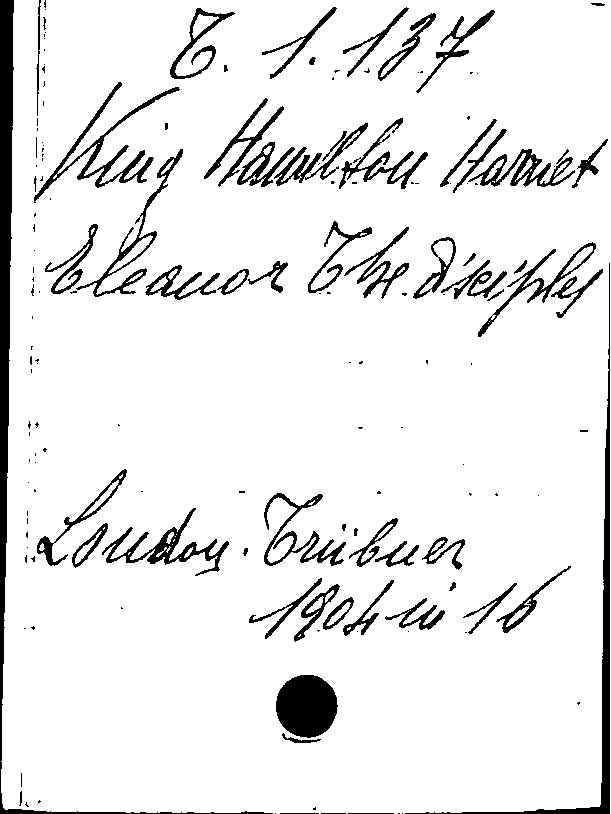 T. 1. 137
King Hamilton Harriet
Eleanor The disciples
London. Trübner
1904 in 16